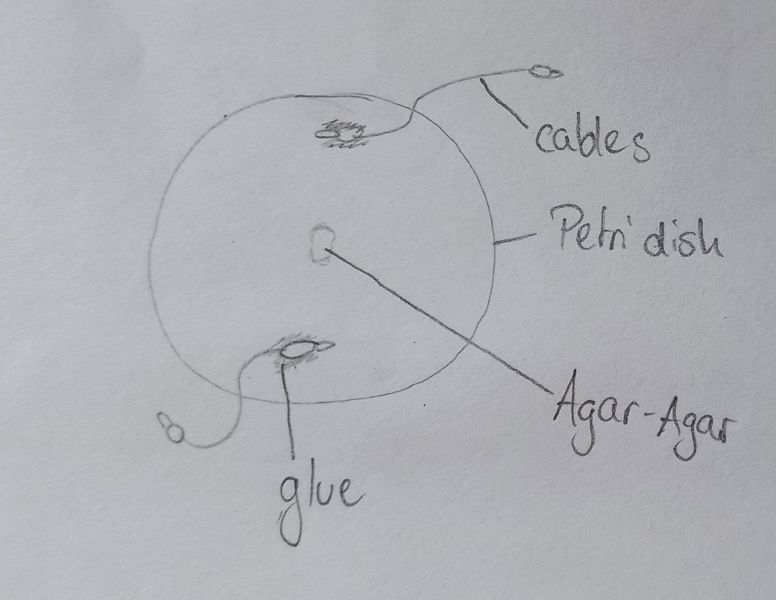 cables
Petri dish
Agar-Agar
glue